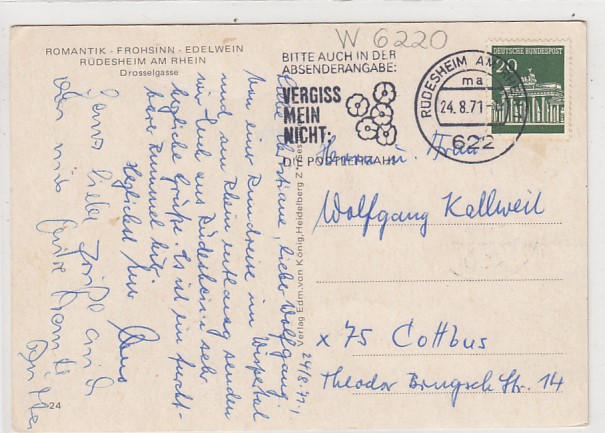 W 6220
ROMANTIK - FROHSINN - EDELWEIN
RÜDESHEIM AM RHEIN
Drosselgasse
BITTE AUCH IN DER
ABSENDERANGABE:
VERGISS
MEIN
NICHT:
DIE POSTLEITZAHL
RÜDESHEIM AM RHEIN
ma
24.8.71
622
DEUTSCHE BUNDESPOST
20
24/8.71.
Liebe Christiane, lieber Wolfgang!
Nun einer Rundreise im Wispertal
und am Rhein entlang senden
wir Euch aus Rüdesheim sehr
herzliche Grüße. Es ist ein furcht-
barer Rummel hier.
Herzlichst Eure
Ganz liebe Grüße auch
von mir
Herrn u. Frau
Wolfgang Kallweil
x 75 Cottbus
Theodor Brugsch Str. 14
Verlag Edm. von König, Heidelberg
24